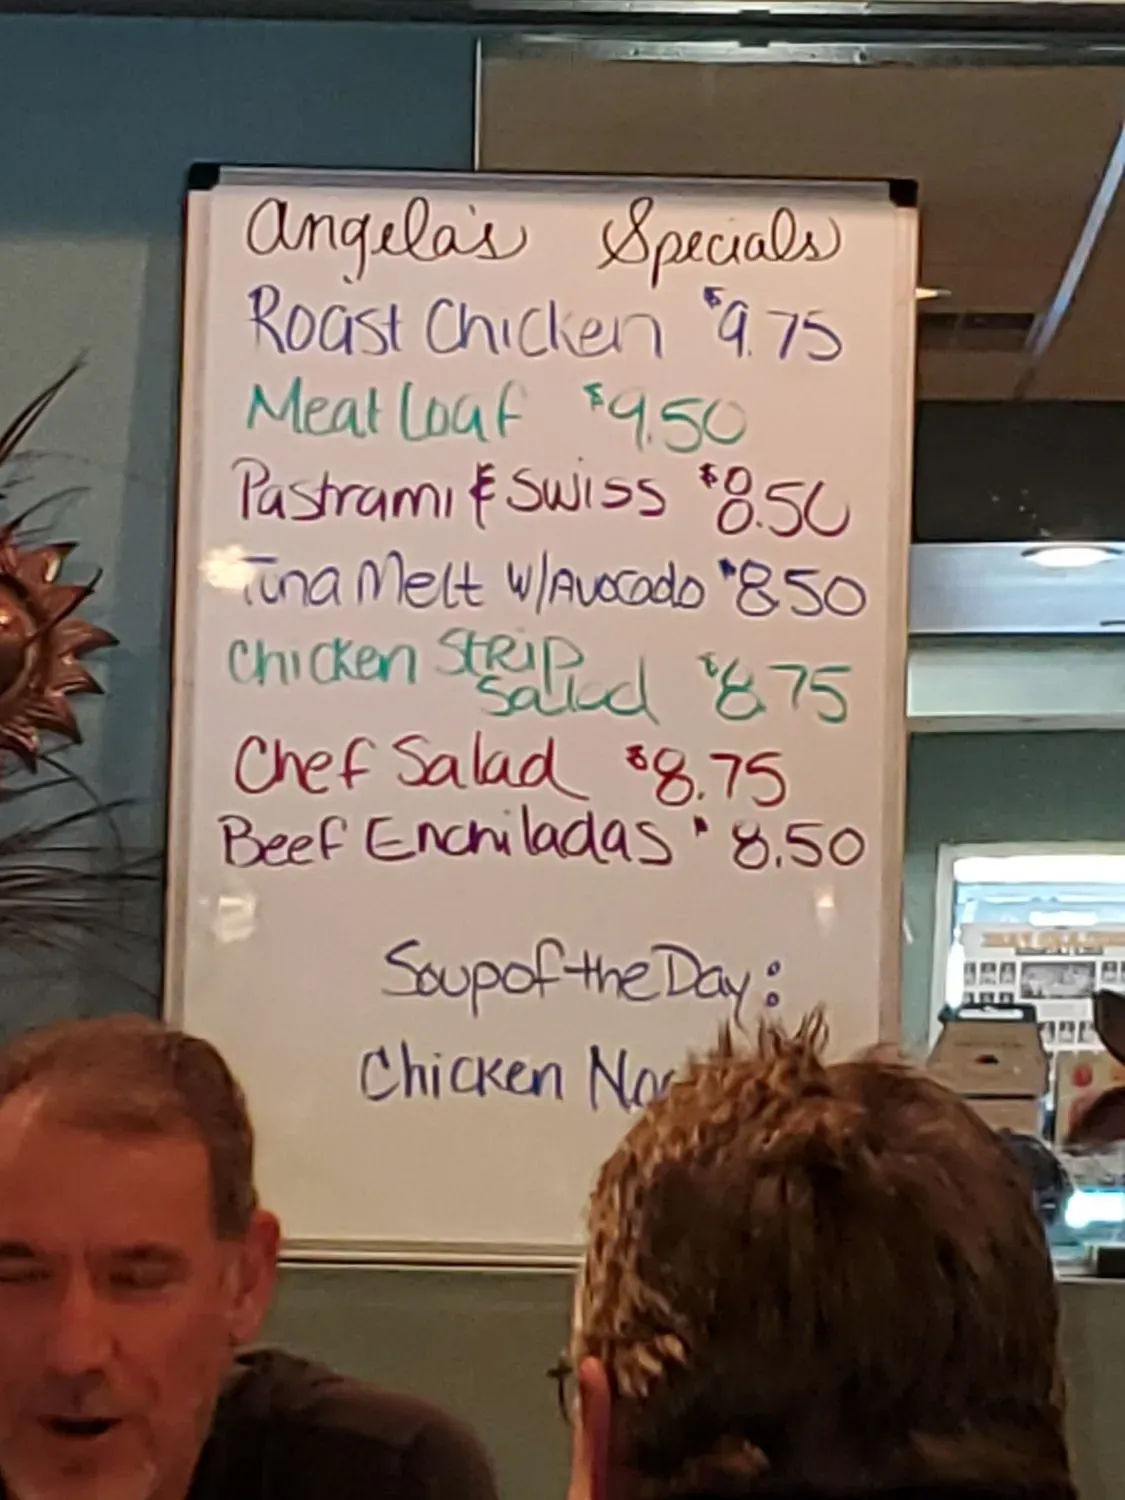 Angela's Specials
Roast Chicken $9.75
Meat Loaf $9.50
Pastrami & Swiss $8.50
Tuna Melt w/Avocado $8.50
Chicken Strip
Salad $8.75
Chef Salad $8.75
Beef Enchiladas $8.50
Soup of the Day:
Chicken